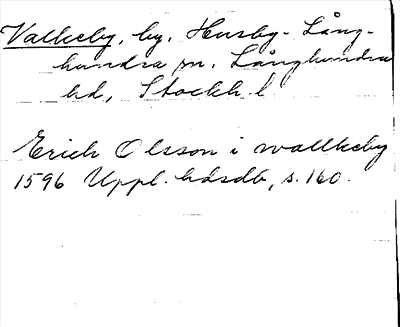 Valkeby, by, Husby-Lång-
hundra sn. Långhundra
hd, Stockh. l.
Erich Olsson i wallkeby
1596 Uppl. hdsdb, s. 160.